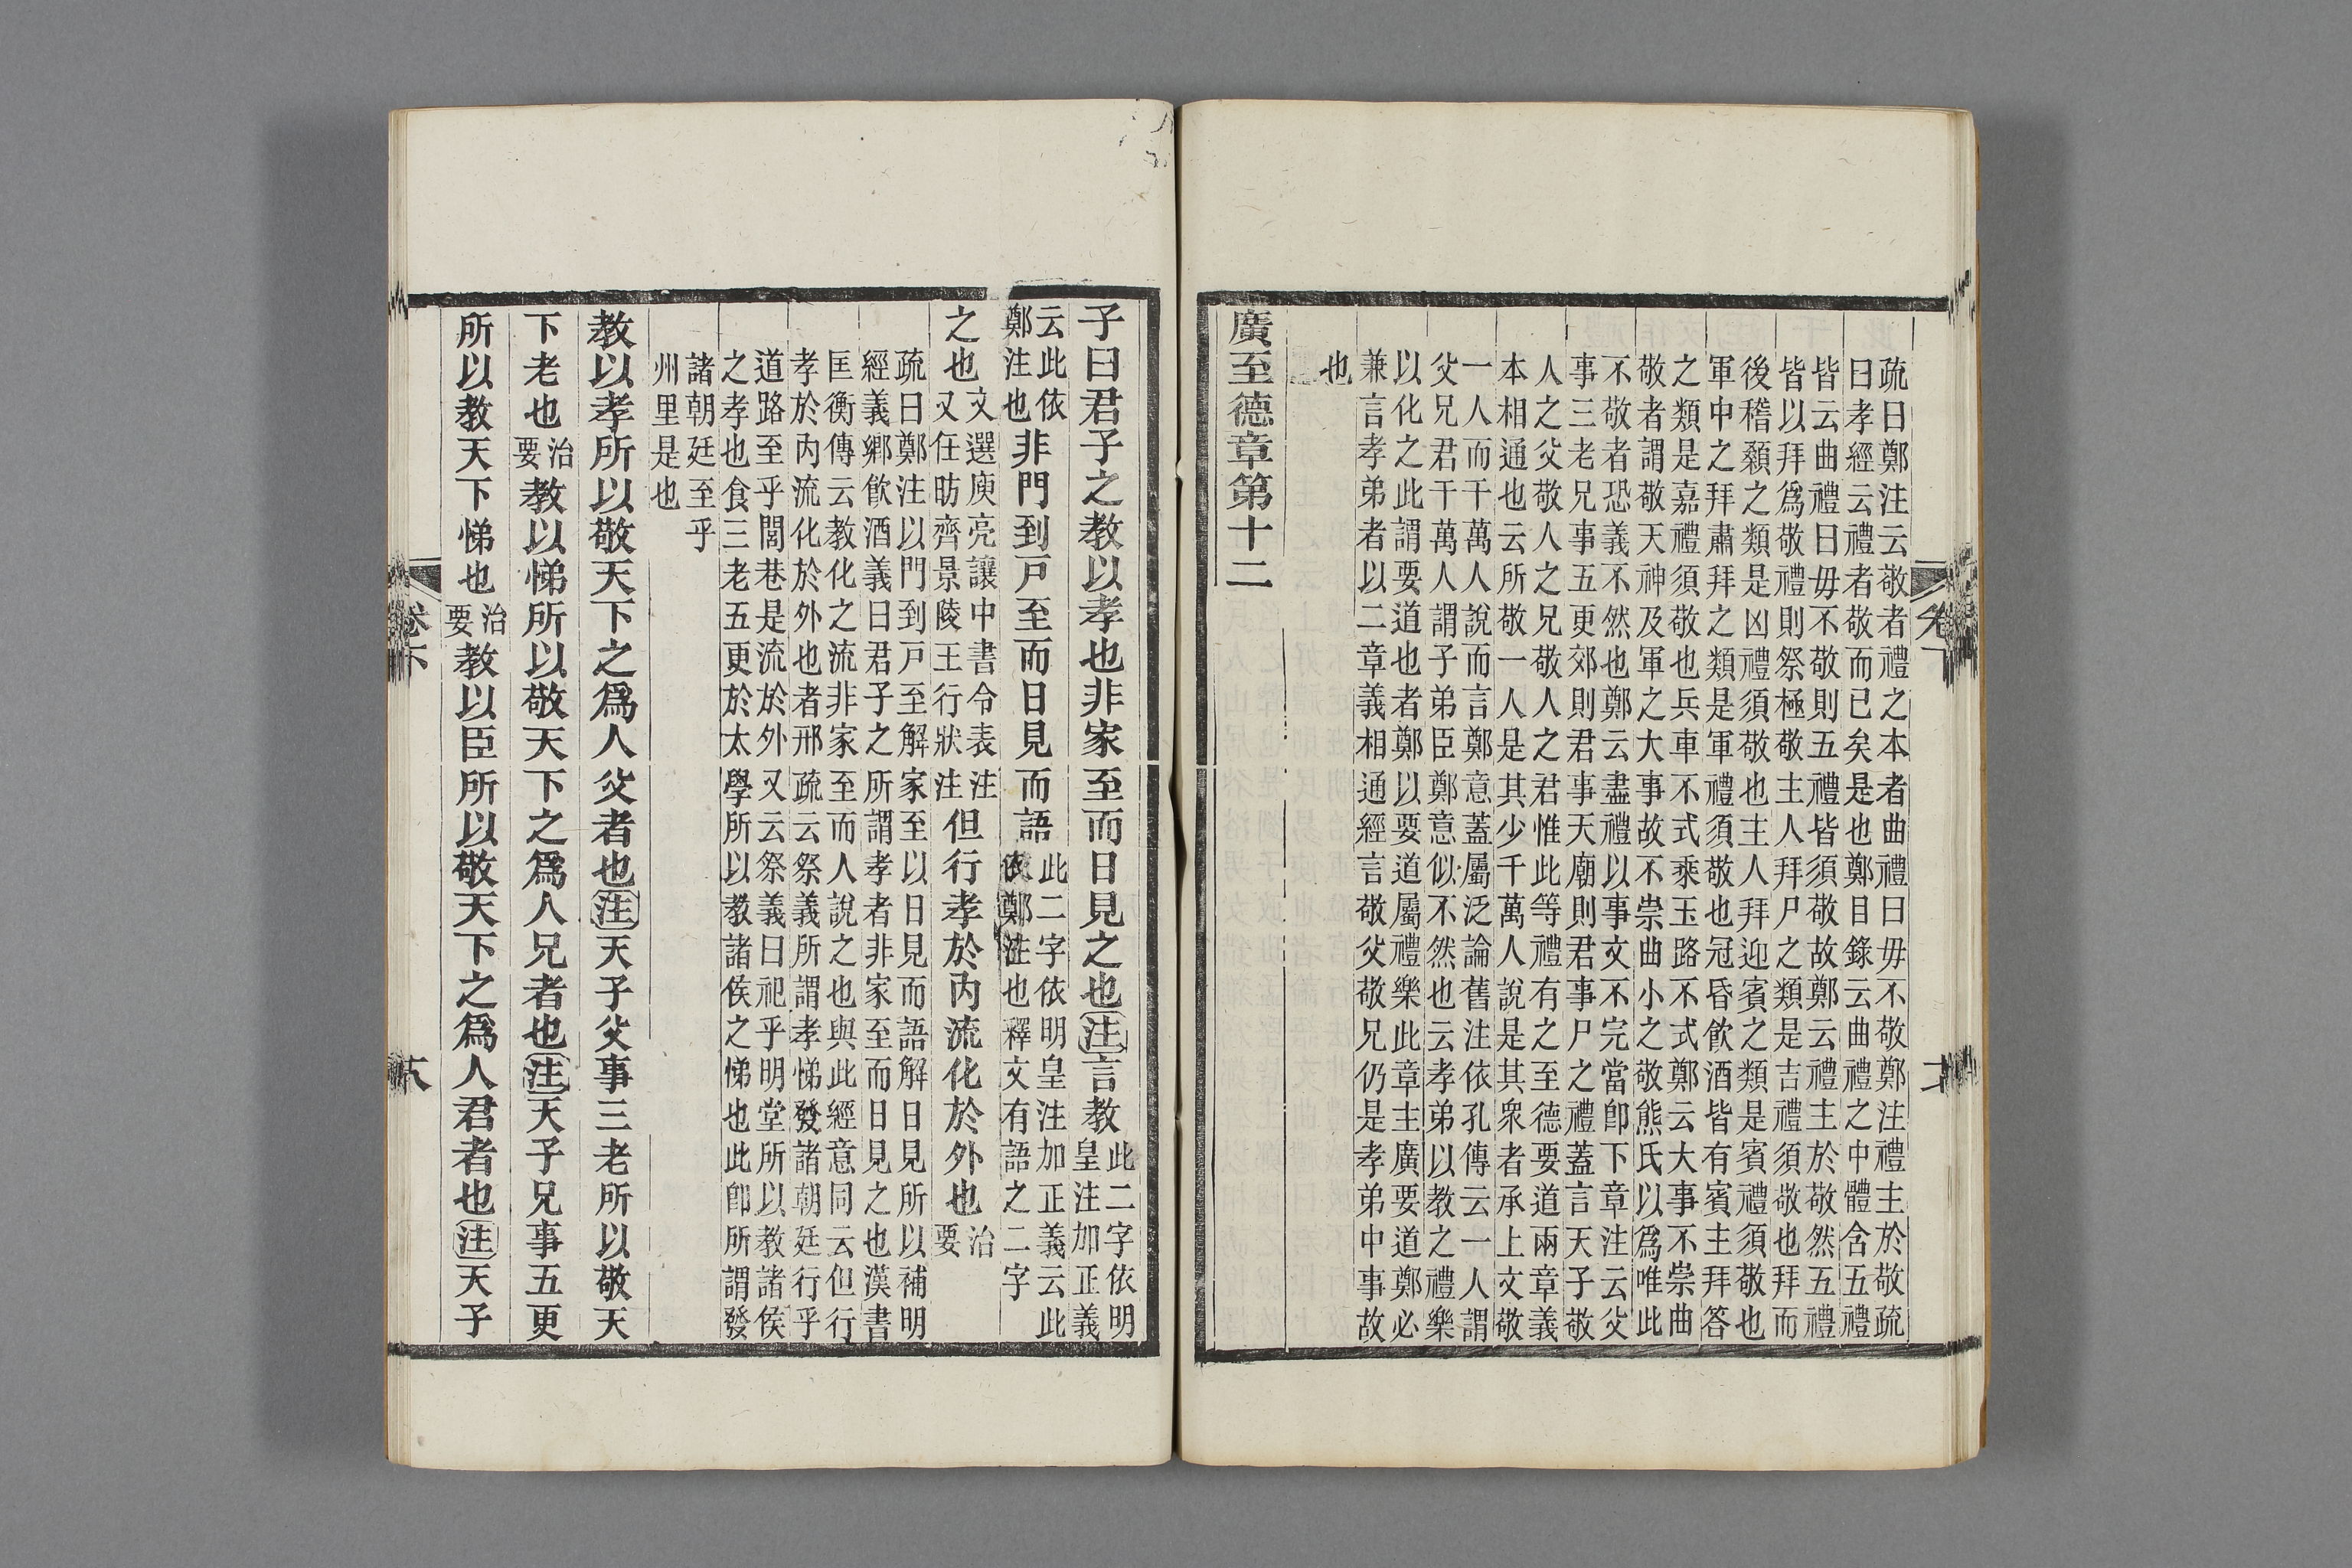 疏曰鄭注云敬者禮之本者曲禮曰毋不敬鄭注禮主於敬疏
曰孝經云禮者敬而已矣是也鄭目錄云曲禮之中體含五禮
皆云曲禮曰毋不敬則五禮皆須敬故鄭云禮主於敬然五禮
皆以拜爲敬禮則祭極敬主人拜尸之類是吉禮須敬也拜而
後稽顙之類是凶禮須敬也主人拜迎賓之類是賓禮須敬也
軍中之拜肅拜之類是軍禮須敬也冠昏飲酒皆有賓主拜答
之類是嘉禮須敬也兵車不式乘玉路不式鄭云大事不崇曲
敬者謂敬天神及軍之大事故不崇曲小之敬熊氏以爲唯此
不敬者恐義不然也鄭云盡禮以事文不完當卽下章注云父
事三老兄事五更郊則君事天廟則君事尸之禮蓋言天子敬
人之父敬人之兄敬人之君惟此等禮有之至德要道兩章義
本相通也云所敬一人是其少千萬人說是其衆者承上文敬
一人而千萬人說而言鄭意蓋屬泛論舊注依孔傳云一人謂
父兄君千萬人謂子弟臣鄭意似不然也云孝弟以教之禮樂
以化之此謂要道也者鄭以要道屬禮樂此章主廣要道鄭必
兼言孝弟者以二章義相通經言敬父敬兄仍是孝弟中事故
也
廣至德章第十二
子曰君子之教以孝也非家至而日見之也注言教此二字依明皇注加正義
云此依鄭注也非門到戶至而日見而語此二字依明皇注加正義云此依鄭注也釋文有語之二字
之也文選庾亮讓中書令表注又任昉齊景陵王行狀注但行孝於內流化於外也治要
疏曰鄭注以門到戶至解家至以日見而語解日見所以補明
經義鄉飲酒義曰君子之所謂孝者非家至而日見之也漢書
匡衡傳云教化之流非家至而人說之也與此經意同云但行
孝於內流化於外也者邢疏云祭義所謂孝悌發諸朝廷行乎
道路至乎閭巷是流於外又云祭義曰祀乎明堂所以教諸侯
之孝也食三老五更於太學所以教諸侯之悌也此卽所謂發
諸朝廷至乎
州里是也
教以孝所以敬天下之爲人父者也注天子父事三老所以敬天
下老也治要教以悌所以敬天下之爲人兄者也注天子兄事五更
所以教天下悌也治要教以臣所以敬天下之爲人君者也注天子
卷下